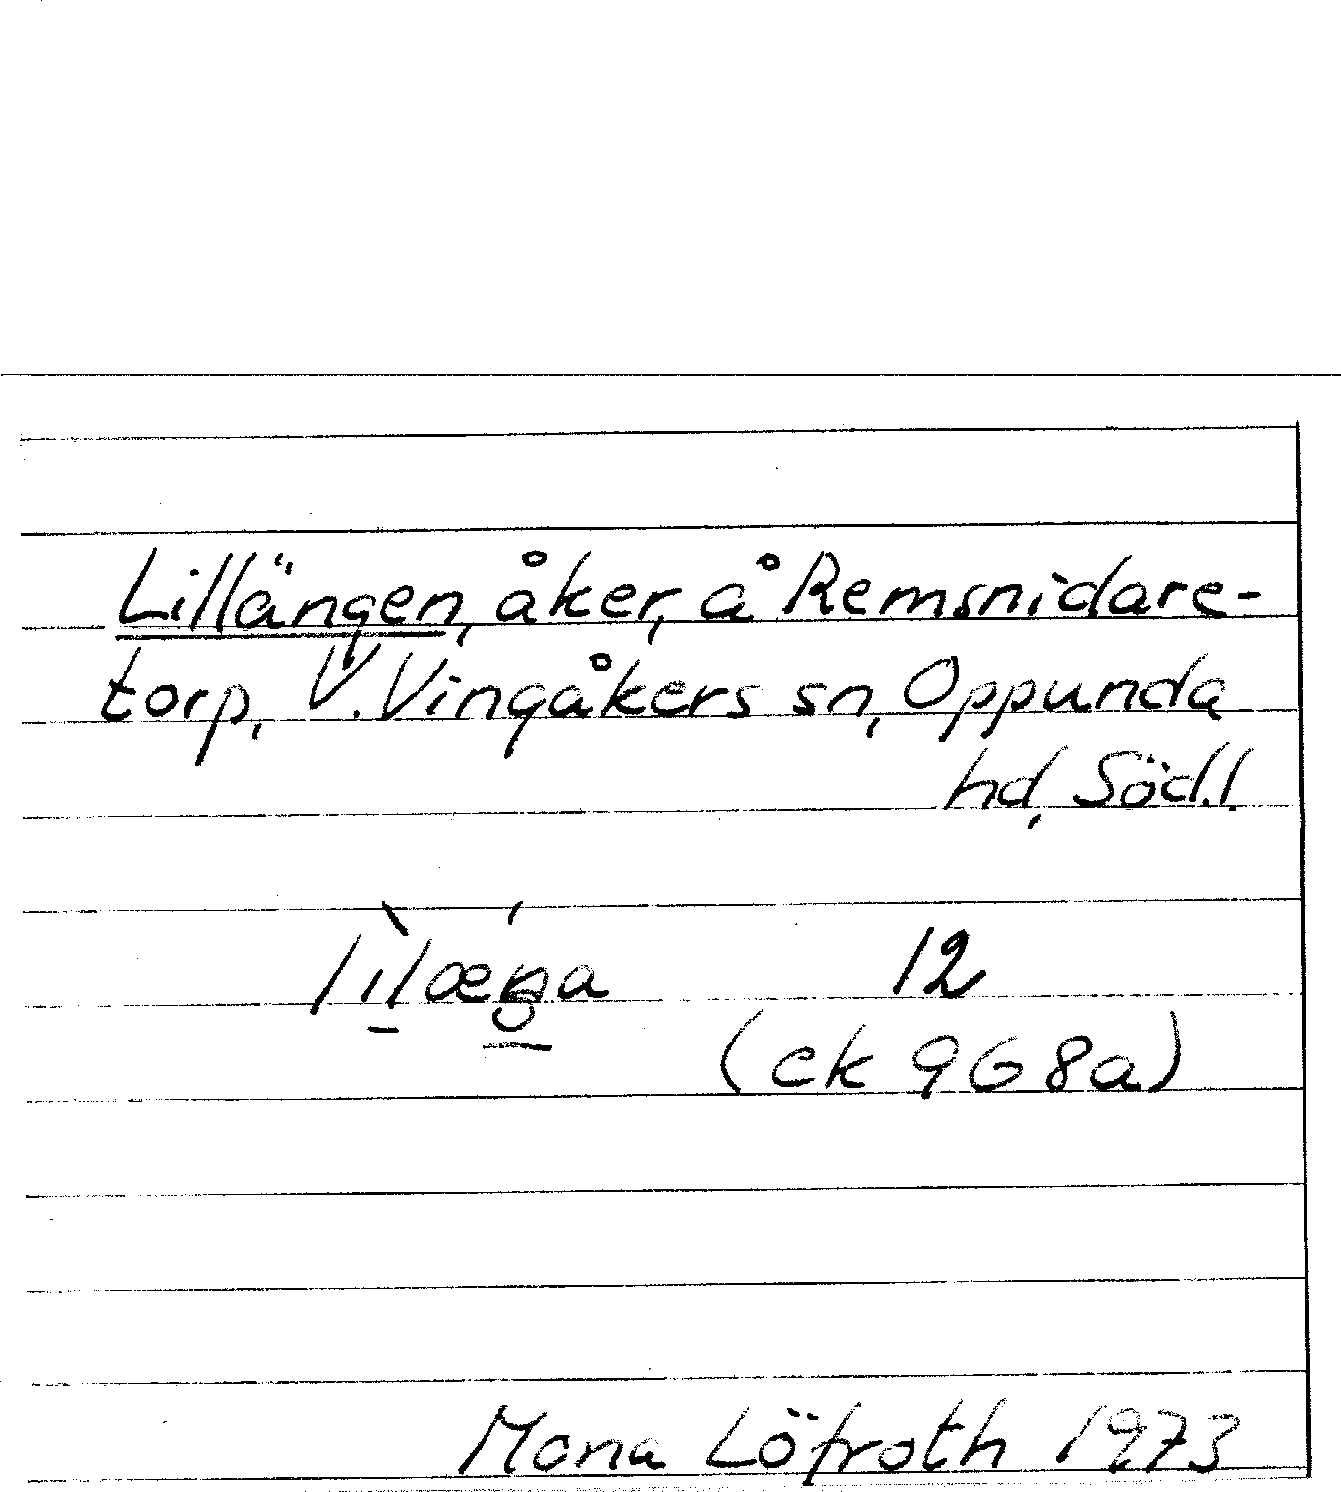 Lillängen, åker, å Remsnidare-
torp, V. Vingåkers sn, Oppunda
hd, Söd.l.
12
(ek 968a)
Mona Löfroth 1973